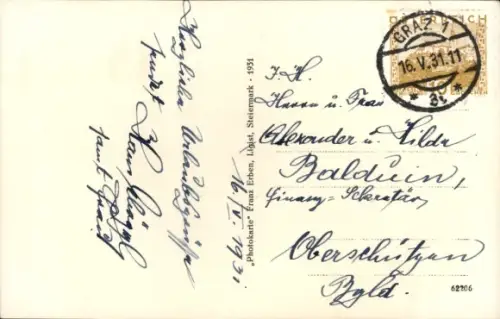 Herzliche Urlaubsgrüße
sendet
Hans
samt
16/V. 1931
"Photokarte" Franz Erben, Ligist, Steiermark - 1931
ÖSTERREICH
GRAZ 1
16.V.31.11
* 3t *
10
I. H.
Herrn u. Frau
Alexander u. Hilda
Balduin,
Finanz-Sekretär,
Oberschützen
Bgld.
62206